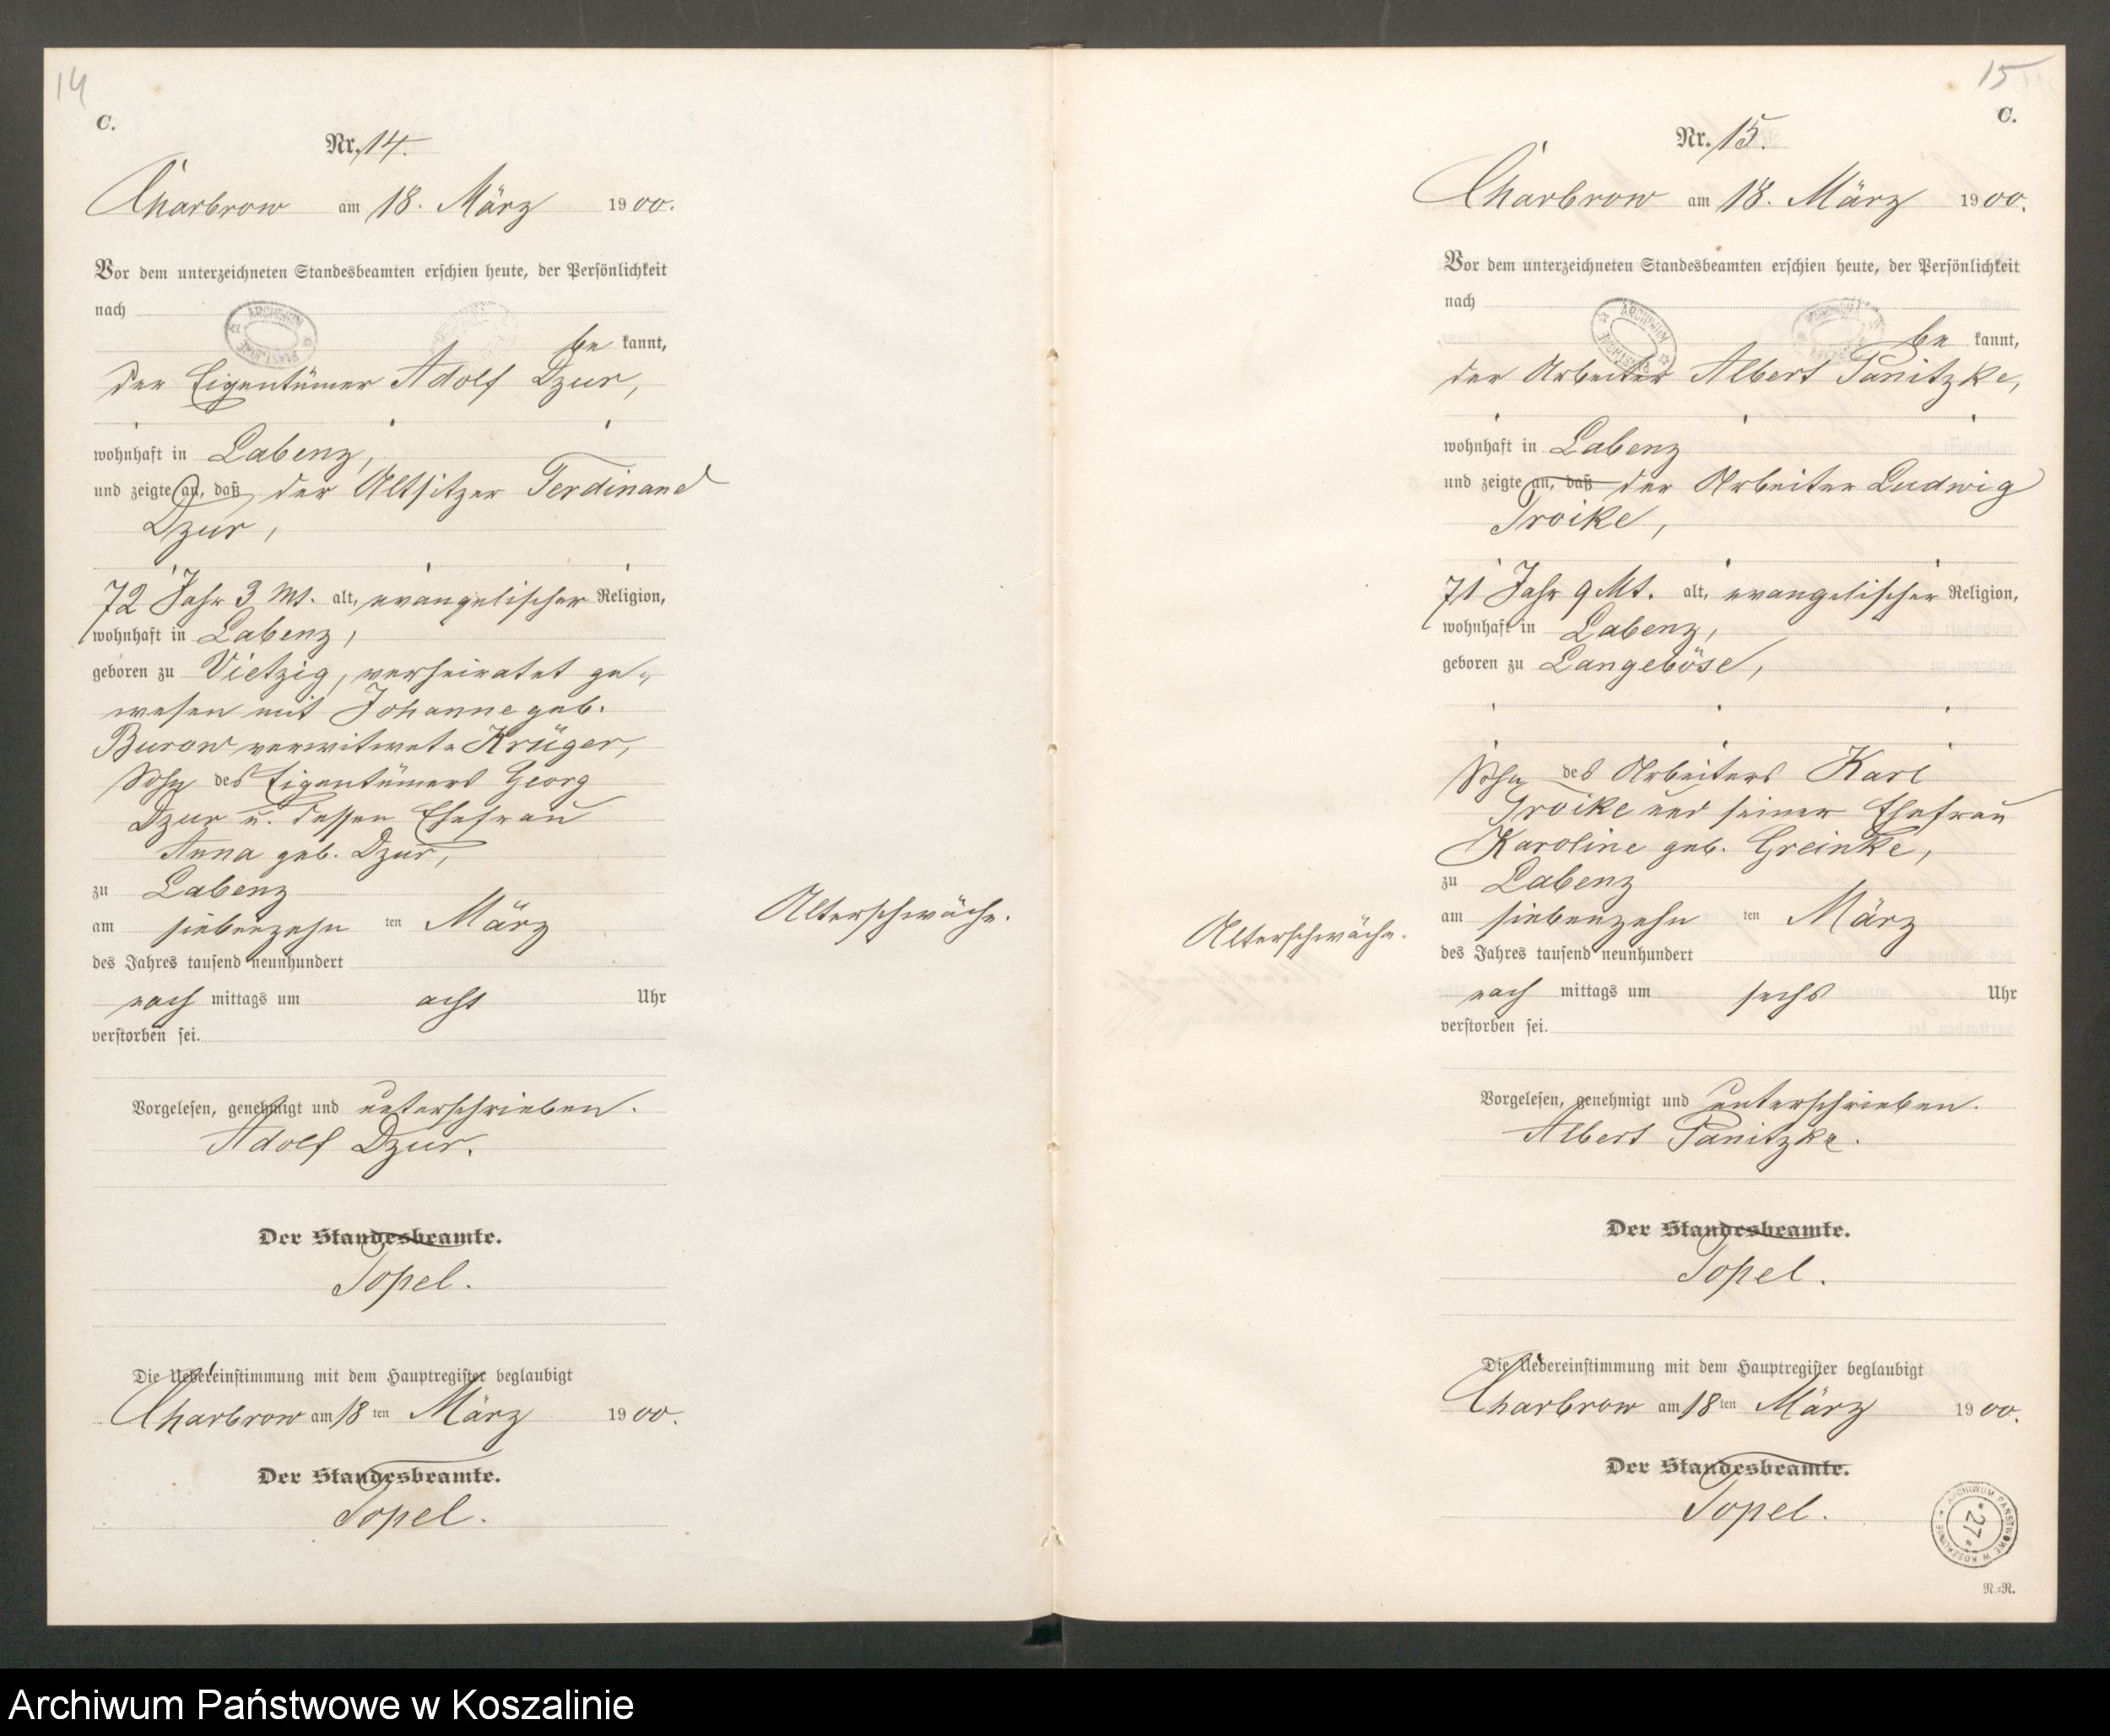 14
C.
Nr. 14.
Charbrow am 18. März 1900.
Vor dem unterzeichneten Standesbeamten erschien heute, der Persönlichkeit
nach
be kannt,
der Eigentümer Adolf Dzur,
wohnhaft in Labenz,
und zeigte an, daß der Altsitzer Ferdinand
Dzur,
72 Jahr 3 Mt. alt, evangelischer Religion,
wohnhaft in Labenz,
geboren zu Vietzig, verheiratet ge-
wesen mit Johanne geb.
Burow verwitwete Krüger,
Sohn des Eigentümers Georg
Dzur u. dessen Ehefrau
Anna geb. Dzur,
zu Labenz
am siebenzehn ten März
des Jahres tausend neunhundert
nach mittags um acht Uhr
verstorben sei.
Vorgelesen, genehmigt und unterschrieben.
Adolf Dzur.
Der Standesbeamte.
Topel.
Die Uebereinstimmung mit dem Hauptregister beglaubigt
Charbrow am 18 ten März 1900.
Der Standesbeamte.
Topel.
Alterschwäche.
15
C.
Nr. 15.
Charbrow am 18. März 1900.
Vor dem unterzeichneten Standesbeamten erschien heute, der Persönlichkeit
nach
be kannt,
der Arbeiter Albert Panitzke,
wohnhaft in Labenz
und zeigte an, daß der Arbeiter Ludwig
Troike,
71 Jahr 9 Mt. alt, evangelischer Religion,
wohnhaft in Labenz,
geboren zu Langeböse,
Sohn des Arbeiters Karl
Troike und seiner Ehefrau
Karoline geb. Greinke,
zu Labenz
am siebenzehn ten März
des Jahres tausend neunhundert
nach mittags um sechs Uhr
verstorben sei.
Vorgelesen, genehmigt und unterschrieben.
Albert Panitzke.
Der Standesbeamte.
Topel.
Die Uebereinstimmung mit dem Hauptregister beglaubigt
Charbrow am 18 ten März 1900.
Der Standesbeamte.
Topel.
Alterschwäche.
ARCHIWUM PAŃSTWOWE W KOSZALINIE
27
R.-R.
Archiwum Państwowe w Koszalinie